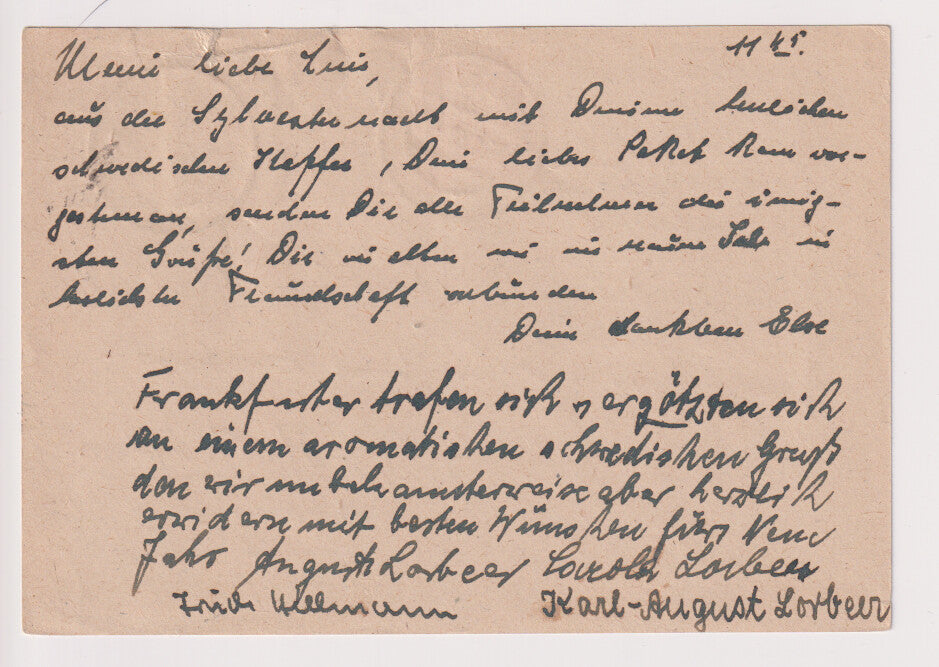 1 1 45.
Meine liebe Luis,
aus der Sylvesternacht mit Deinem herrlichen
schwedischen Kaffee, Dein liebes Paket kam vor-
gestern an, senden Dir alle Teilnehmer die innig-
sten Grüße! Dir wollen wir im neuen Jahr in
herzlichster Freundschaft verbunden
Deine dankbare Else
Frankfurter trafen sich u ergötzten sich
an einem aromatischen schwedischen Gruß
den wir unbekannterweise aber herzlich
erwidern mit besten Wünschen fürs Neue
Jahr August Lorbeer Carola Lorbeer
Ullmann Karl-August Lorbeer